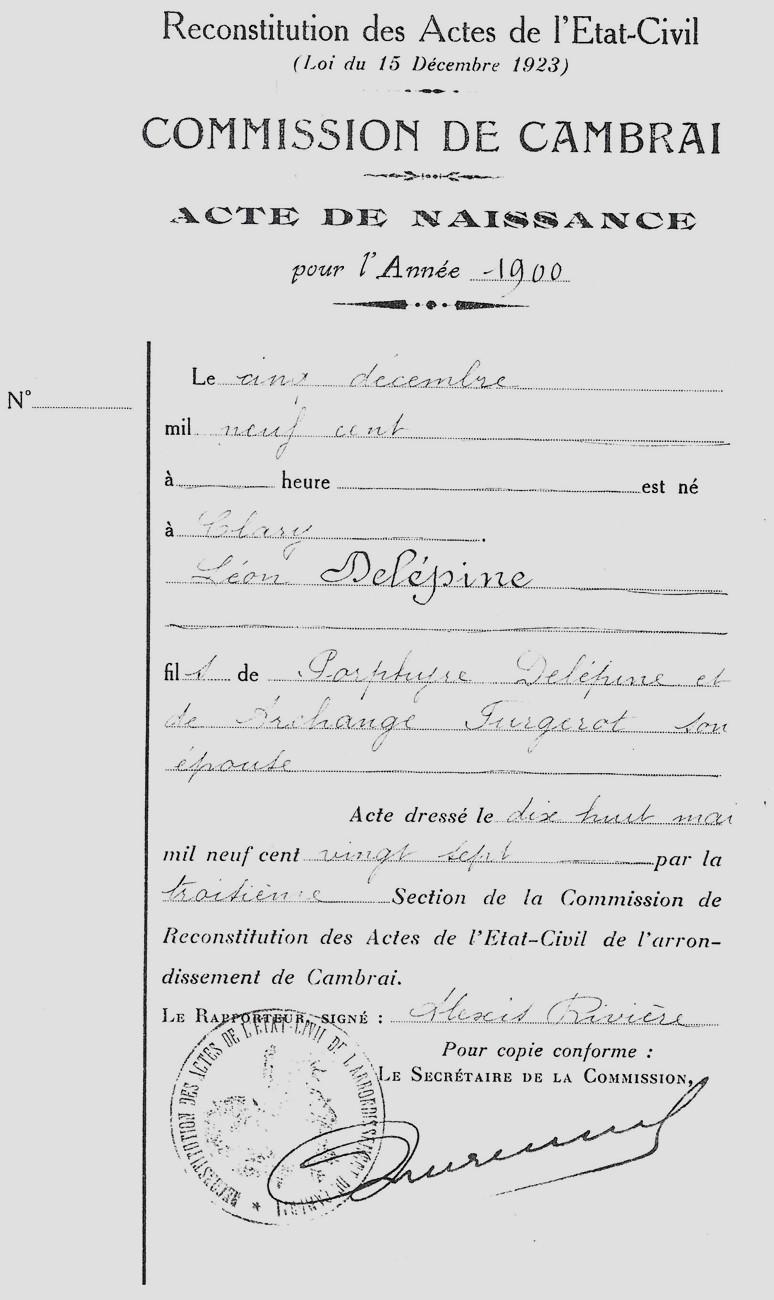 Reconstitution des Actes de l'Etat-Civil
(Loi du 15 Décembre 1923)
COMMISSION DE CAMBRAI
ACTE DE NAISSANCE
pour l'Année 1900
N°
Le cinq décembre
mil neuf cent
à heure est né
à Clary .
Léon Delépine
fils de Porphyre Delépine et
de Archange Furgerot son
épouse
Acte dressé le dix huit mai
mil neuf cent vingt sept par la
troisième Section de la Commission de
Reconstitution des Actes de l'Etat-Civil de l'arron-
dissement de Cambrai.
LE RAPPORTEUR, SIGNÉ : Alexis Rivière
Pour copie conforme :
LE SECRÉTAIRE DE LA COMMISSION,
RECONSTITUTION DES ACTES DE L'ETAT-CIVIL DE L'ARRONDISSEMENT DE CAMBRAI